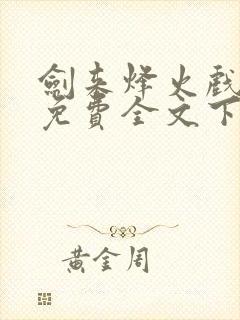 劍来烽火戲
免費全文下
黃金周